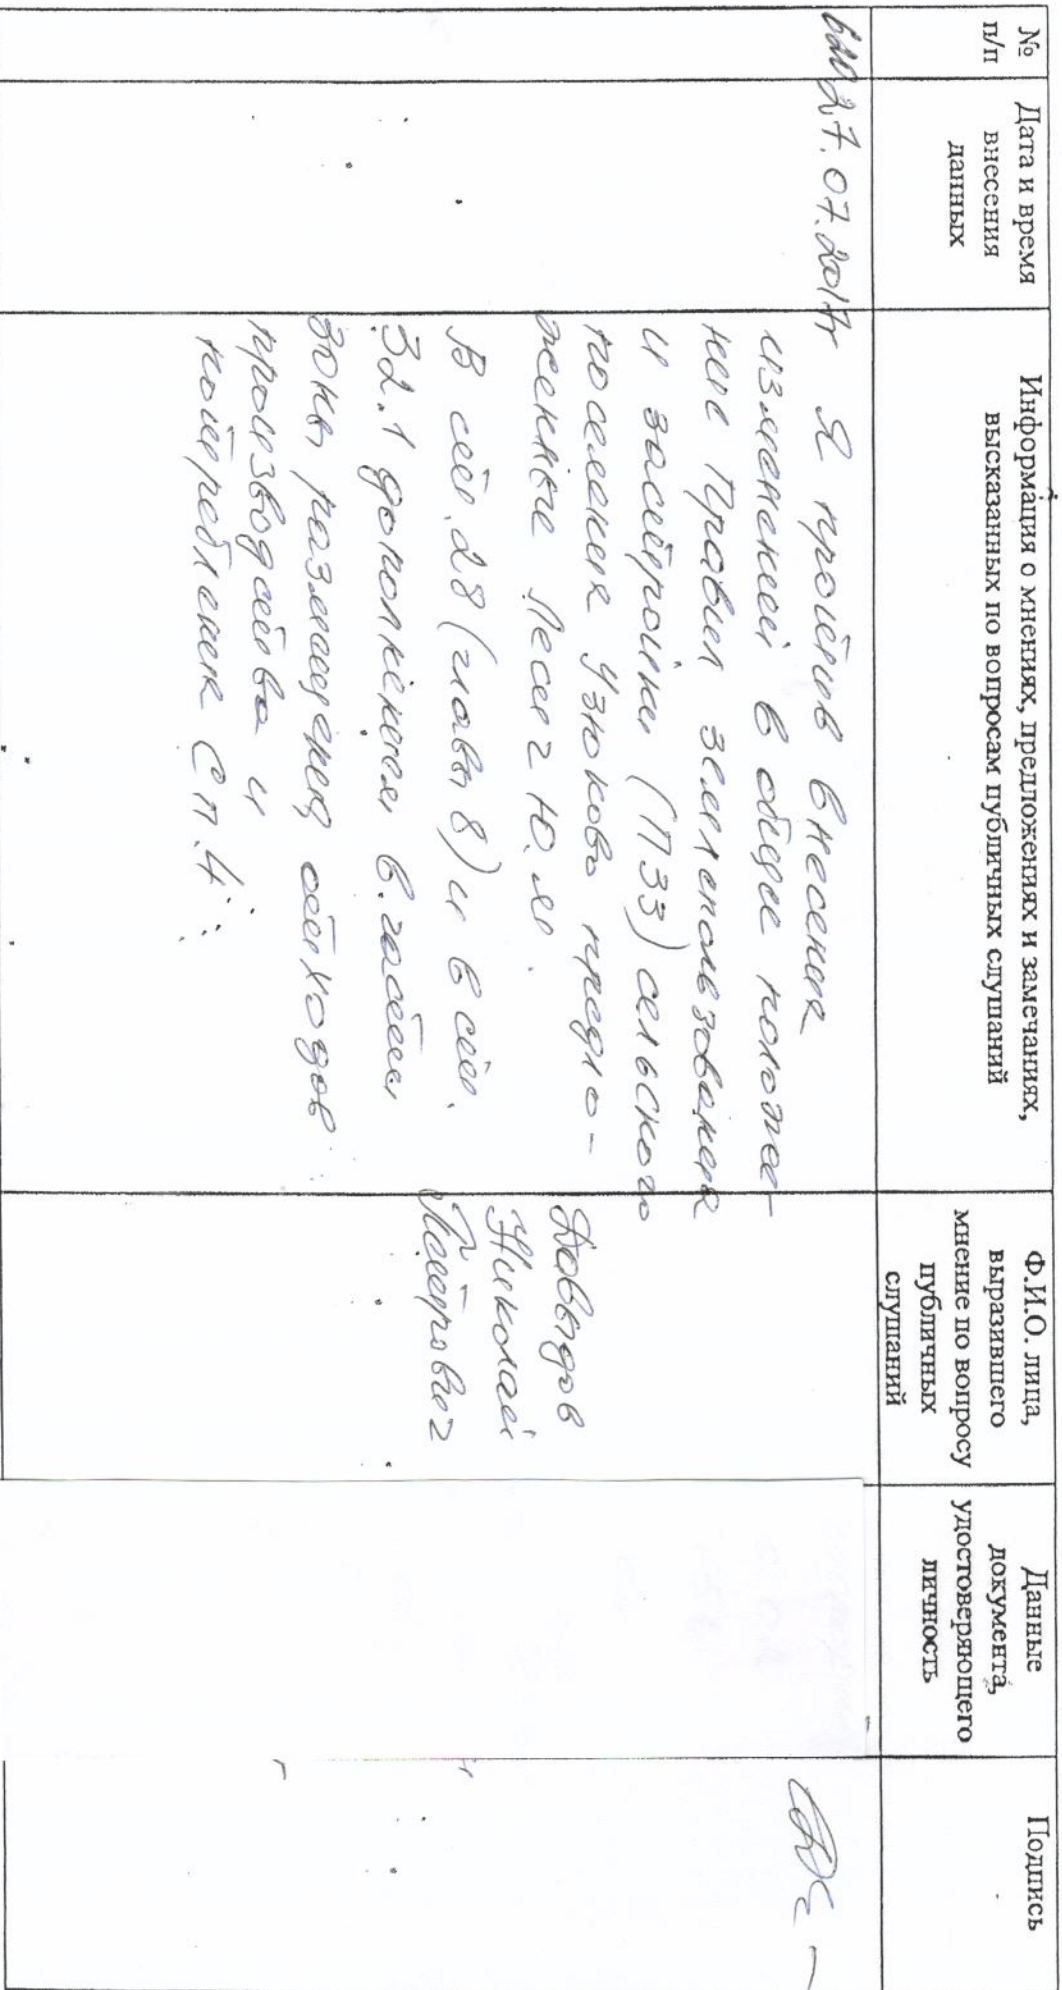 №
п/п
Дата и время
внесения
данных
Информация о мнениях, предложениях и замечаниях,
высказанных по вопросам публичных слушаний
Ф.И.О. лица,
выразившего
мнение по вопросу
публичных
слушаний
Данные
документа,
удостоверяющего
личность
Подпись
620
27.07.2017г
Я против внесения
изменений в общее положе-
ние Правил землепользования
и застройки (ПЗЗ) сельского
поселения Узюково предло-
женные Лесег Ю.М.
В ст. 28 (главы 8) и в ст.
32.1 дополнение в части
зоны размещения отходов
производства и
потребления СП.4
Давыдов
Николай
Петрович